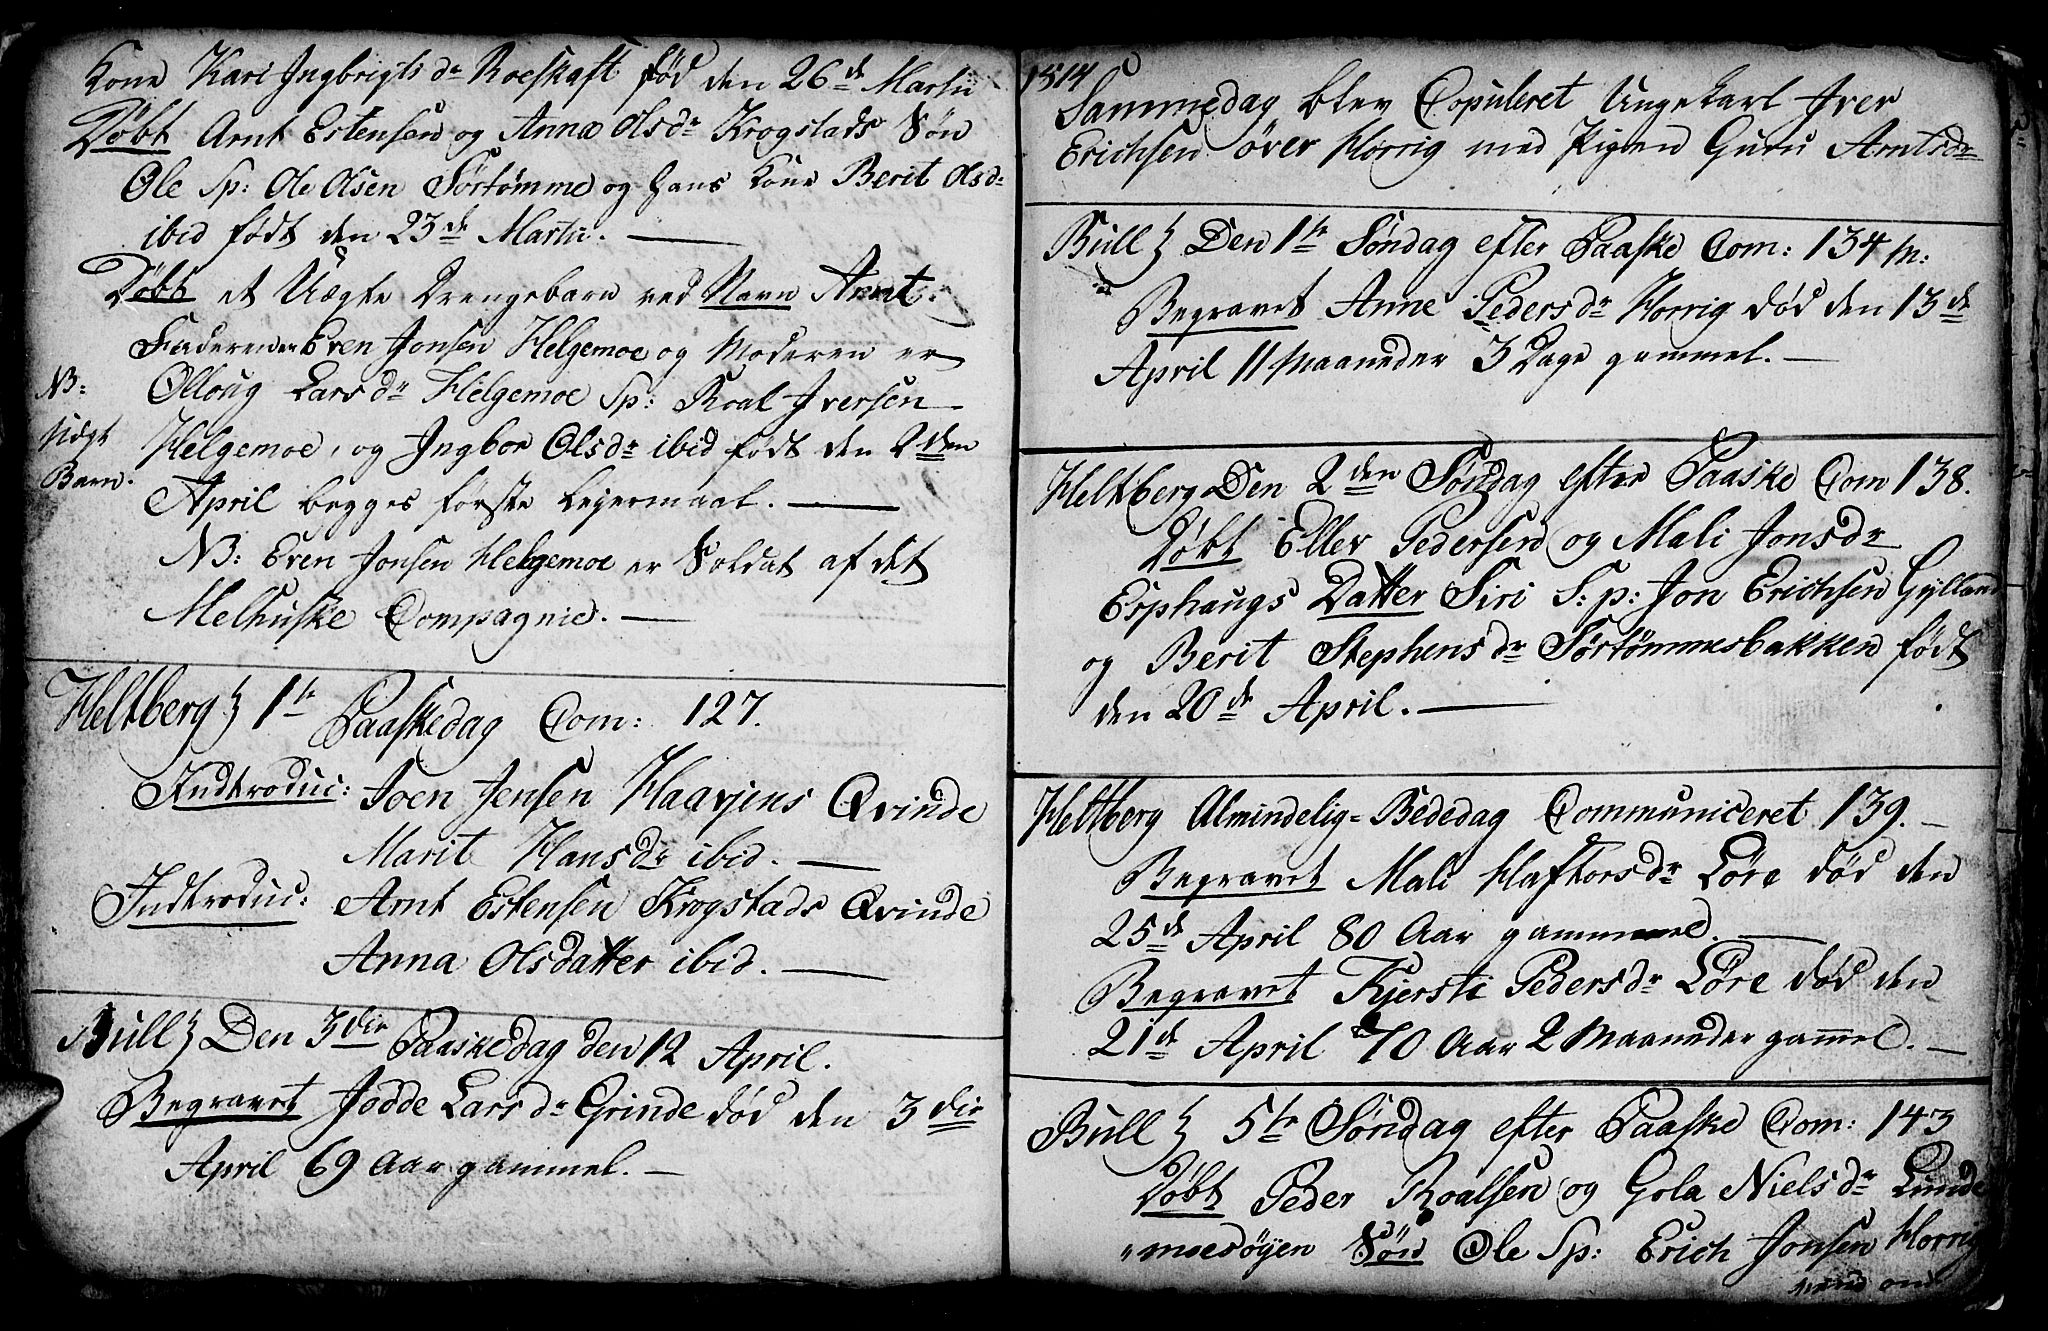 Kone Kari Ingbrigts dr Roeskaft fød den 26de Martii
Døbt Arnt Estensen og Anna Olsdr Krogstads Søn
Ole Sp: Ole Olsen Sørtømme og hans Kone Berit Olsdr
ibid født den 23de Martii.
Døbt et Uægte Drengebarn ved Navn Arnt.
Faderen er Even Jonsen Helgemoe og Moderen er
Olloug Lars dr Helgemoe Sp: Roal Iversen
NB:
Uægt
Barn.
Helgemoe, og Ingbor Olsdr ibid født den 2den
April begges første Lejermaal.
NB: Even Jonsen Helgemoe er Soldat af det
Melhuske Compagnie.
Heltberg 1te Paaskedag Com: 127.
Indtroduc: Joen Jensen Haavjens Qvinde
Marit Hansdr ibid.
Indtroduc: Arnt Estensen Krogstads Qvinde
Anna Olsdatter ibid.
Bull Den 3die Paaskedag den 12 April.
Begravet Jodde Lars dr Grinde død den 3die
April 69 Aar gammel.
Sammedag blev Copuleret Ungekarl Iver
Erichsen over Horrig med Pigen Guru Arntsdr
Bull Den 1te Søndag efter Paaske Com: 134 M:
Begravet Anne Peders dr Horrig død den 13de
April 11 Maaneder 3 Dage gammel.
Heltberg Den 2den Søndag efter Paaske Com 138.
Døbt Ellev Pedersen og Mali Jonsdr
Esphaugs Datter Siri S: p: Jon Erichsen Gylland
og Berit Stephensdr Sørtømmesbakken født
den 20de April.
Heltberg Almindelig-Bededag Communiceret 139.
Begravet Mali Haftorsdr Løre død den
25de April 80 Aar gammel.
Begravet Kjersti Pedersdr Løre død den
21de April 70 Aar 2 Maaneder gammel.
Bull 5te Søndag efter Paaske Com: 143
Døbt Peder Roalsen og Gola Niels dr Lunde
"moesøyen Søn Ole Sp: Erich Jonsen Horrig